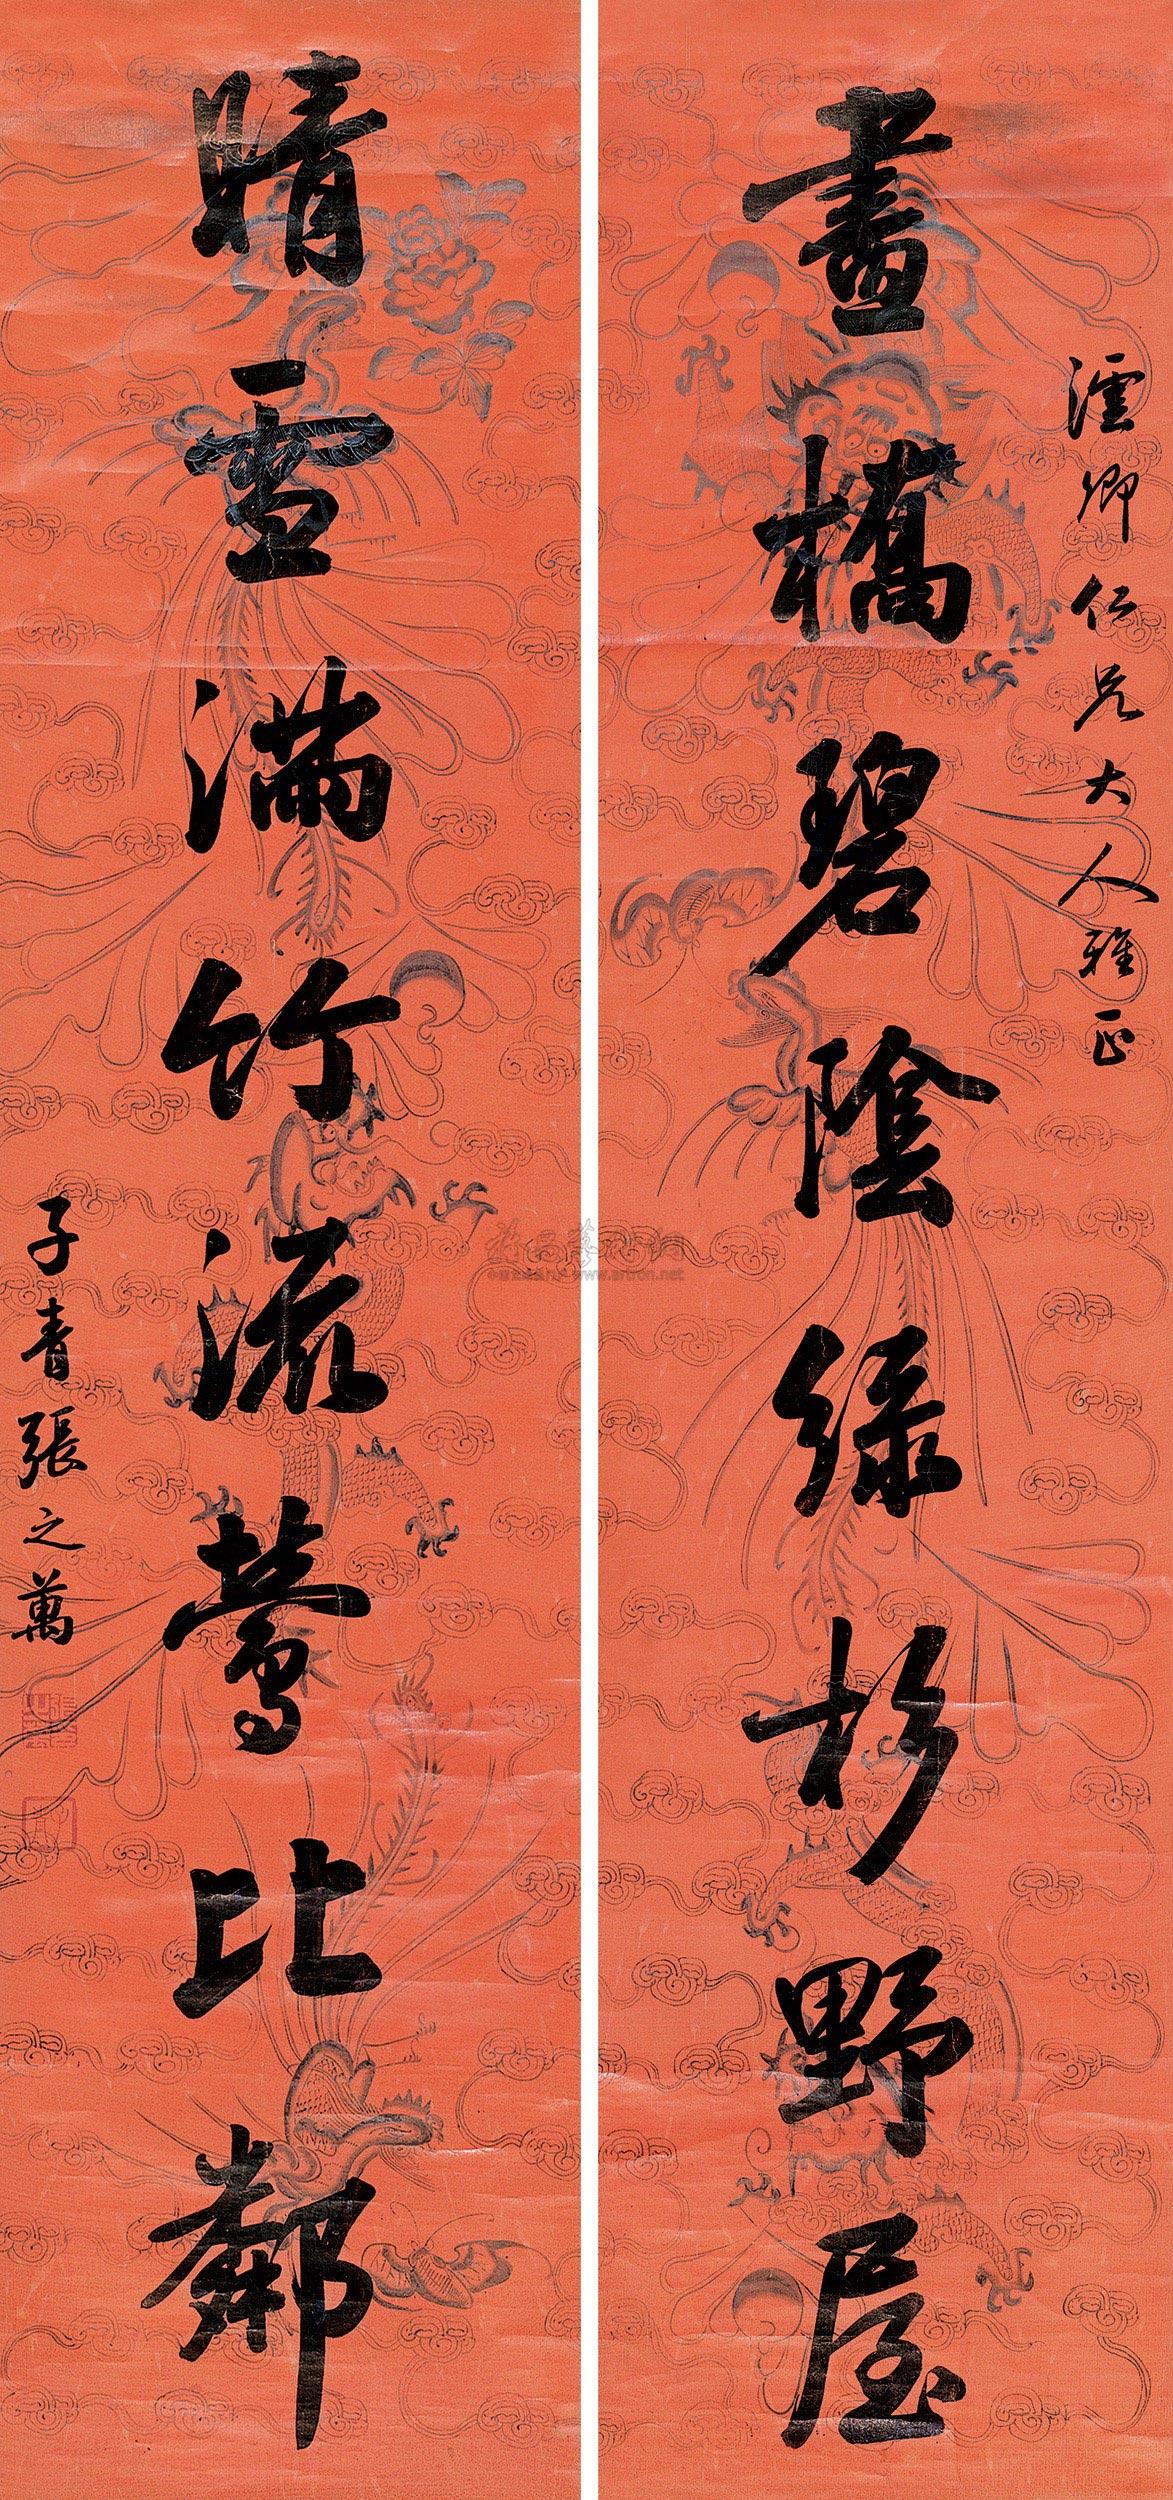 澐卿仁兄大人雅正
畫橋碧陰綠杉野屋
晴雪滿竹流鶯比鄰
子青張之萬
www.artron.net